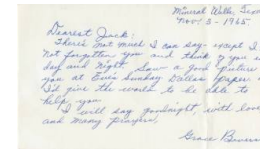 Mineral Wells, Texas
Nov. 3 - 1965.
Dearest Jack:
There's not much I can say - except I
not forgotten you and think of you
day and night. Saw a good picture
you at Eva's Sunday Dallas paper
I'd give the world to be able to
help you
I will say goodnight, with love
and many prayers,
Grace